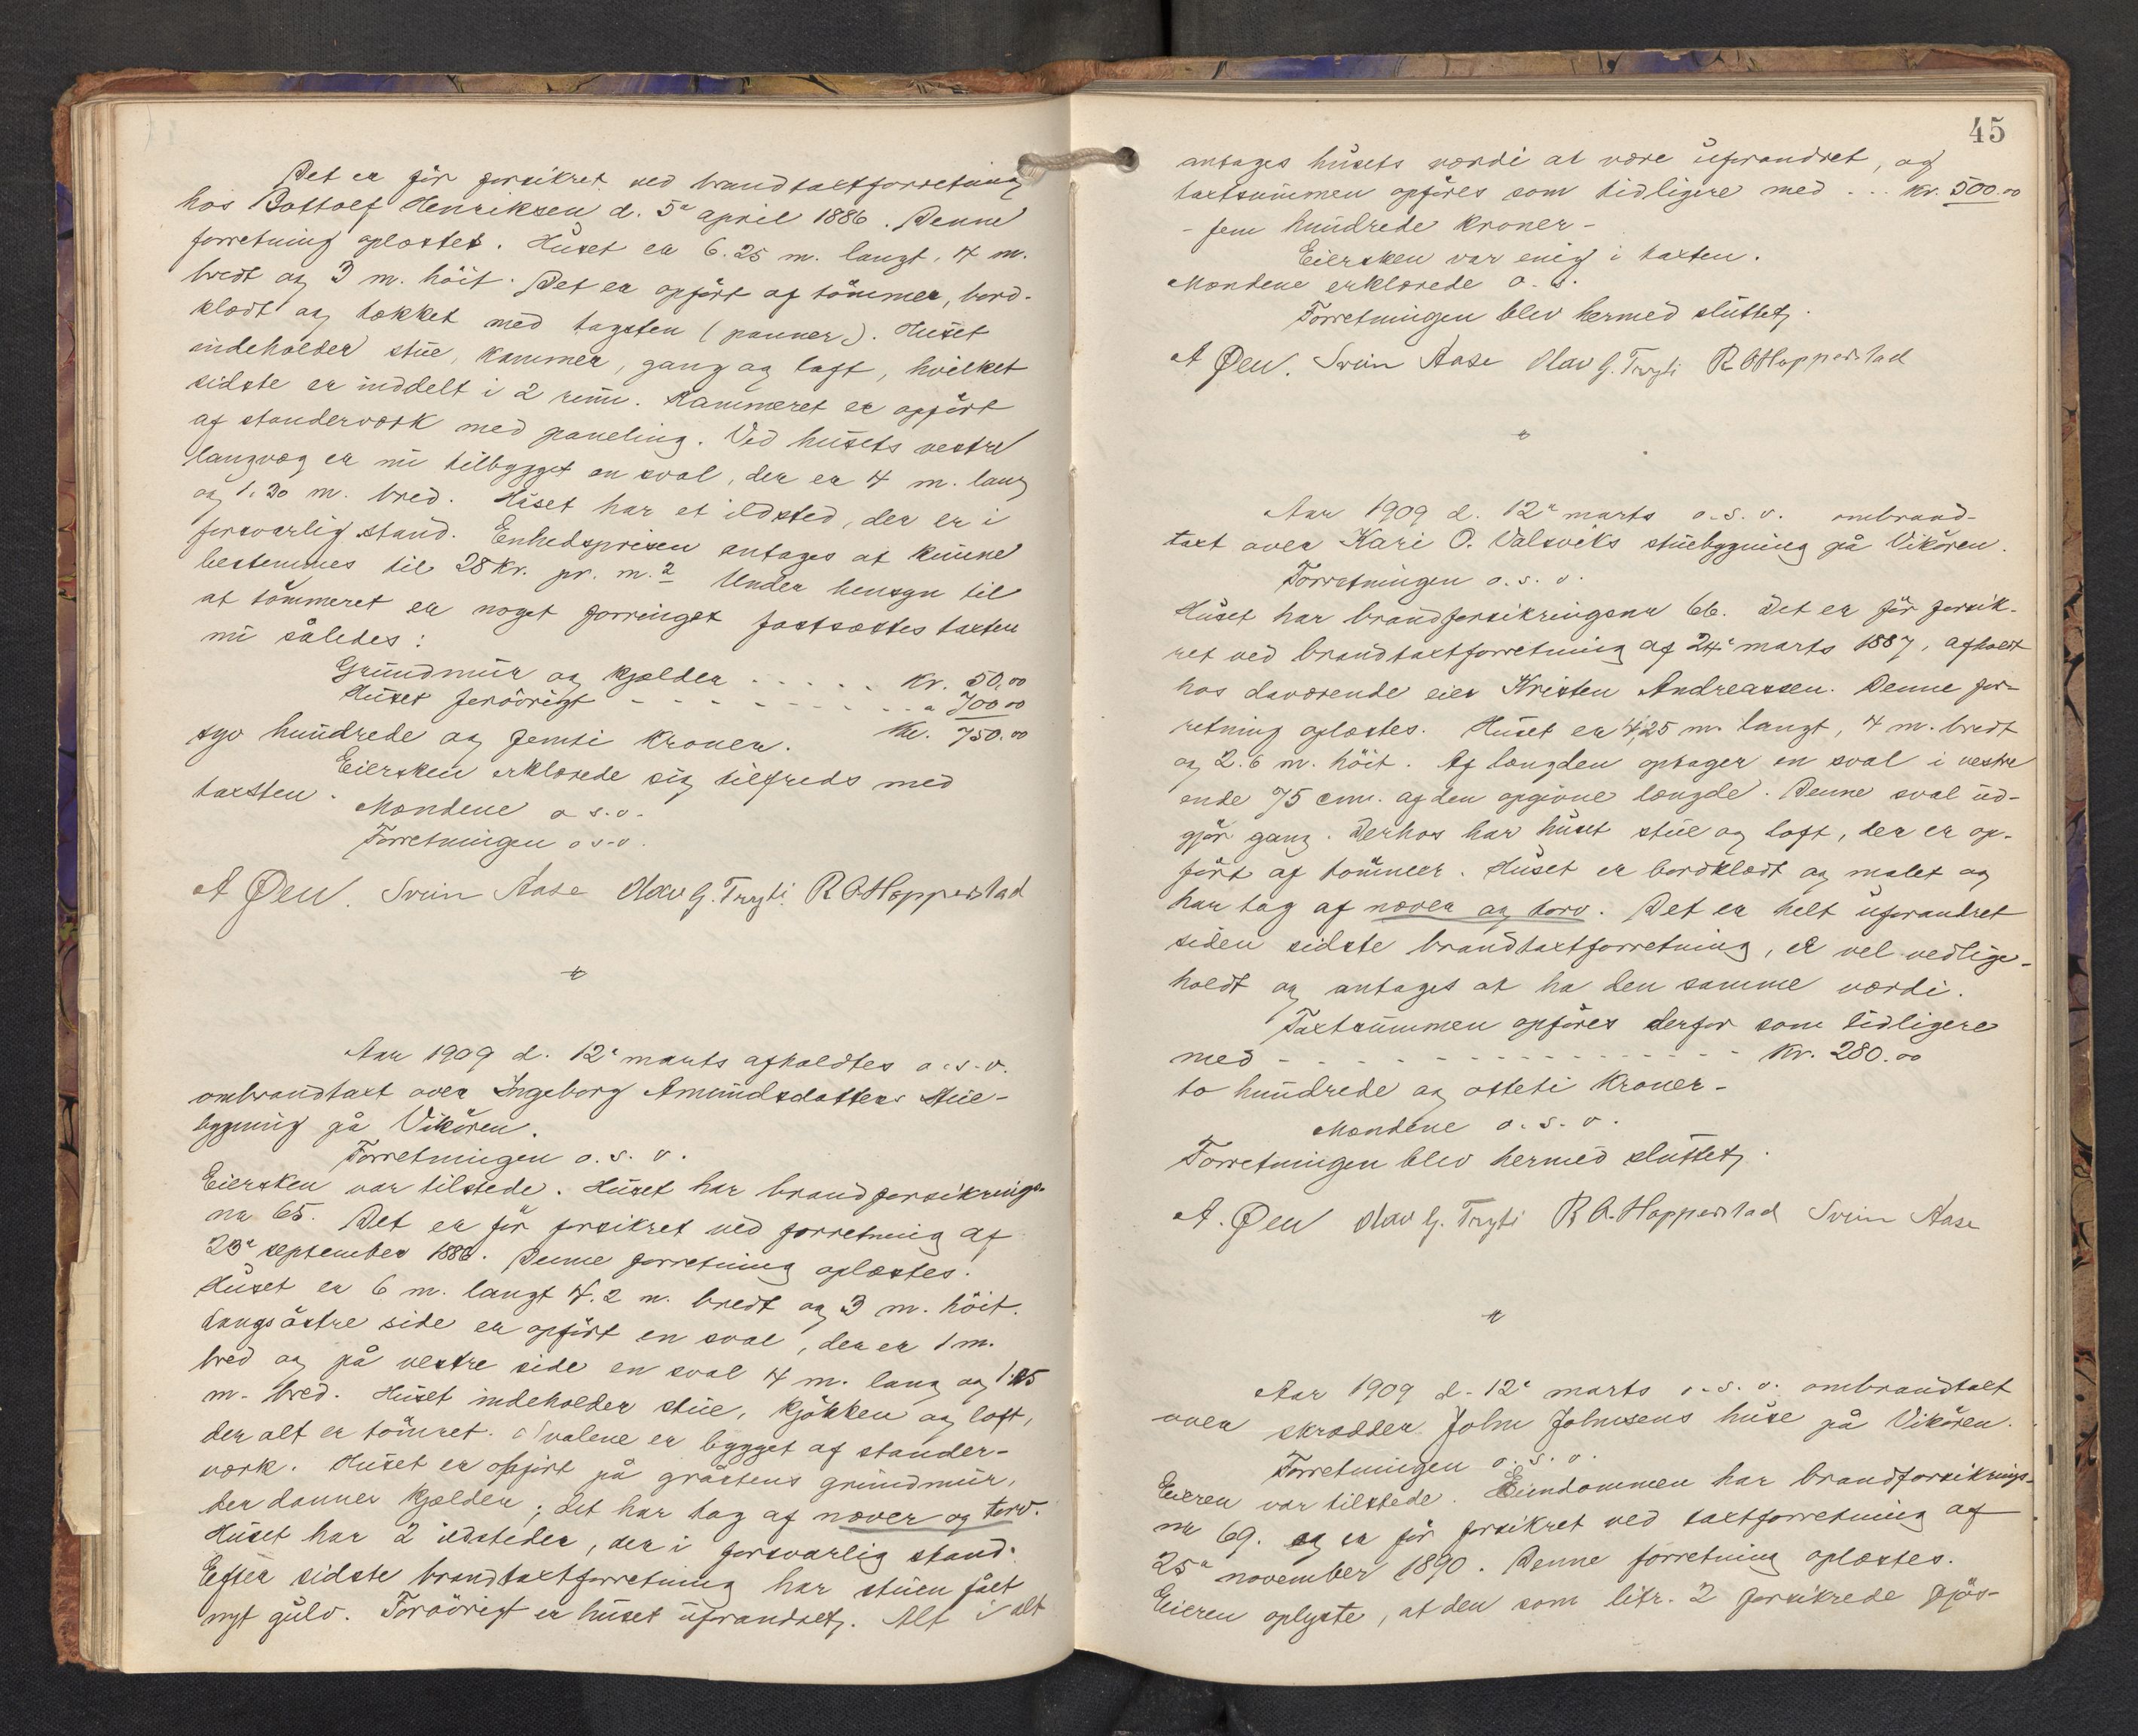 Det er før forsikret ved brandtaxtforretning
hos Bottolf Henriksen d. 5e april 1886. Denne
forretning oplæstes. Huset er 6.25 m. langt, 4 m.
bredt og 3 m. høit. Det er opført af tømmer, bord-
klædt og tækket med tagsten (panner). Huset
indeholder stue, kammer, gang og loft, hvilket
sidste er inddelt i 2 rum. Kammeret er opført
af standerværk med paneling. Ved husets vestre
langvæg er nu tilbygget en sval, der er 4 m. lang
og 1.30 m. bred. Huset har et ildsted, der er i
forsvarlig stand. Enhedsprisen antages at kunne
bestemmes til 28 kr. pr. m.2 Under hensyn til
at tømmeret er noget forringet fastsættes taxten
nu således:
Grundmur og kjælder ..... kr. 50.00
Huset forøvrigt - - - - - - - - - " 700.00
syv hundrede og femti kroner. kr. 750.00
Eiersken erklærede sig tilfreds med
taxsten.
Mændene o s.v.
Forretningen o s.v.
A Øen. Svein Aase Olav G. Tryti R O Hopperstad
Aar 1909 d. 12e marts afholdtes o.s.v.
ombrandtaxt over Ingeborg Amundsdatters stue-
bygning på Vikøren.
Forretningen o.s.v.
Eiersken var tilstede. Huset har brandforsikrings-
nr 65. Det er før forsikret ved forretning af
23e september 1886. Denne forretning oplæstes.
Huset er 6 m. langt 4.2 m. bredt og 3 m. høit.
Langs østre side er opført en sval, der er 1 m.
bred og på vestre side en sval 4 m. lang og 1.25
m. bred. Huset indeholder stue, kjøkken og loft,
der alt er tømret. Svalene er bygget af stander-
værk. Huset er opført på gråstens grundmur,
der danner kjælder; det har tag af næver og torv.
Huset har 2 ildsteder, der i forsvarlig stand.
Efter sidste brandtaxtforretning har stuen fået
nyt gulv. Forøvrigt er huset uforandret. Alt i alt
45
antages husets værdi at være uforandret, og
taxtsummen opføres som tidligere med ... kr. 500.00
- fem hundrede kroner -
Eiersken var enig i taxten.
Mændene erklærede o.s.
Forretningen blev hermed sluttet.
A Øen. Svein Aase Olav G. Tryti R O Hopperstad
Aar 1909 d. 12e marts o.s.v. ombrand-
taxt over Kari O. Valsviks stuebygning på Vikøren.
Forretningen o.s.v.
Huset har brandforsikringsnr 66. Det er før forsik-
ret ved brandtaxtforretning af 24e marts 1887, afholdt
hos daværende eier Kristen Andreassen. Denne for-
retning oplæstes. Huset er 4,25 m. langt, 4 m. bredt
og 2.6 m. høit. Af længden optager en sval i vestre
ende 75 cm. af den opgivne længde. Denne sval ud-
gjør gang. Derhos har huset stue og loft, der er op-
ført af tømmer. Huset er bordklædt og malet og
har tag af næver og torv. Det er helt uforandret
siden sidste brandtaxtforretning, er vel vedlige-
holdt og antages at ha den samme værdi.
Taxtsummen opføres derfor som tidligere
med - - - - - - - - - - - - - - - kr. 280.00
to hundrede og otteti kroner -
Mændene o.s.v.
Forretningen blev hermed sluttet.
A. Øen Olav G. Tryti R O. Hopperstad Svein Aase
Aar 1909 d. 12e marts o.s.v. ombrandtaxt
over skrædder John Johnsens huse på Vikøren.
Forretningen o.s.v.
Eieren var tilstede. Eiendommen har brandforsikrings-
nr 69. og er før forsikret ved taxtforretning af
25e november 1890. Denne forretning oplæstes.
Eieren oplyste, at den som litr. 2 forsikrede fjøs-